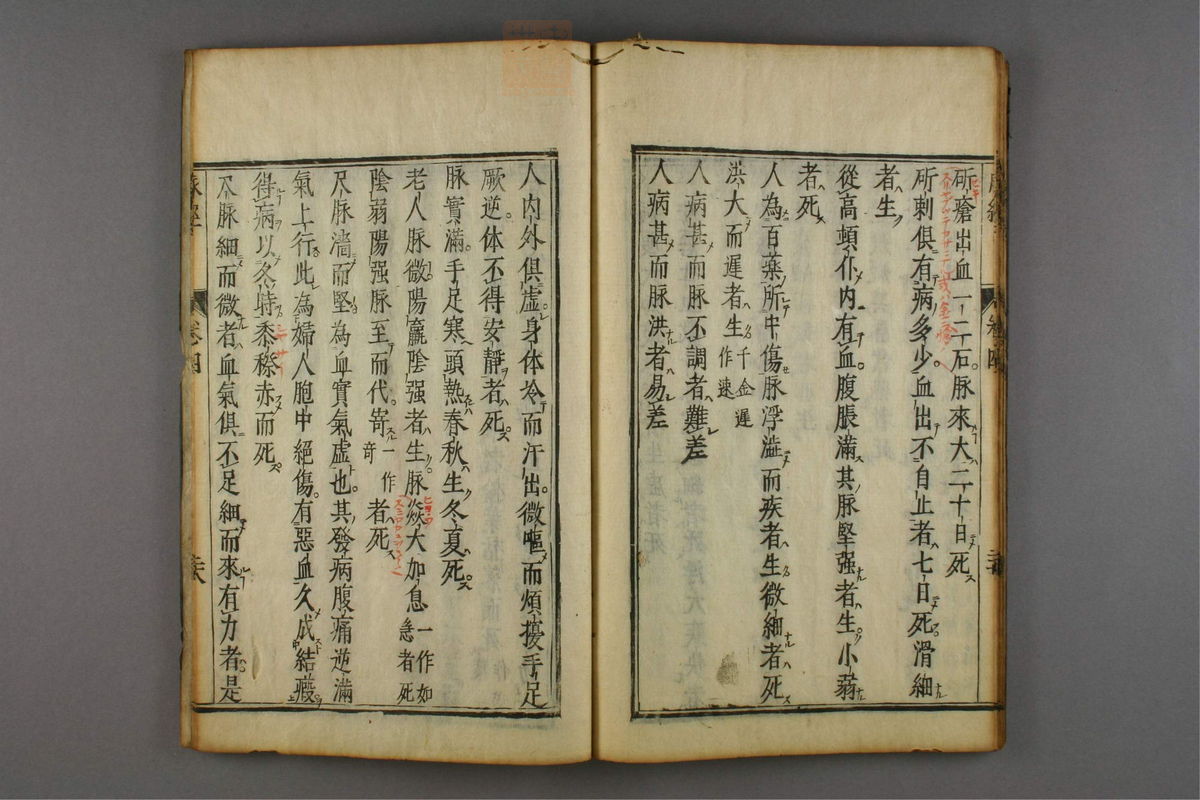 斫瘡出血一二石脈來大二十日死
斫刺俱有病多少血出不自止者七日死滑細
者生
從高頓仆内有血腹脹滿其脈堅强者生小弱
者死
人為百藥所中傷脈浮澁而疾者生微細者死
洪大而遲者生千金遲作速
人病甚而脈不調者難差
人病甚而脈洪者易差
人内外俱虚身体冷而汗出微嘔而煩擾手足
厥逆体不得安靜者死
脈實滿手足寒頭熱春秋生冬夏死
老人脈微陽羸陰强者生脈焱大加息一作如急者死
陰弱陽强脈至而代寄一作奇者死
尺脈濇而堅為血實氣虚也其發病腹痛逆滿
氣上行此為婦人胞中絕傷有惡血久成結瘕
得病以冬時黍穄赤而死
尺脈細而微者血氣俱不足細而來有力者是
卷四